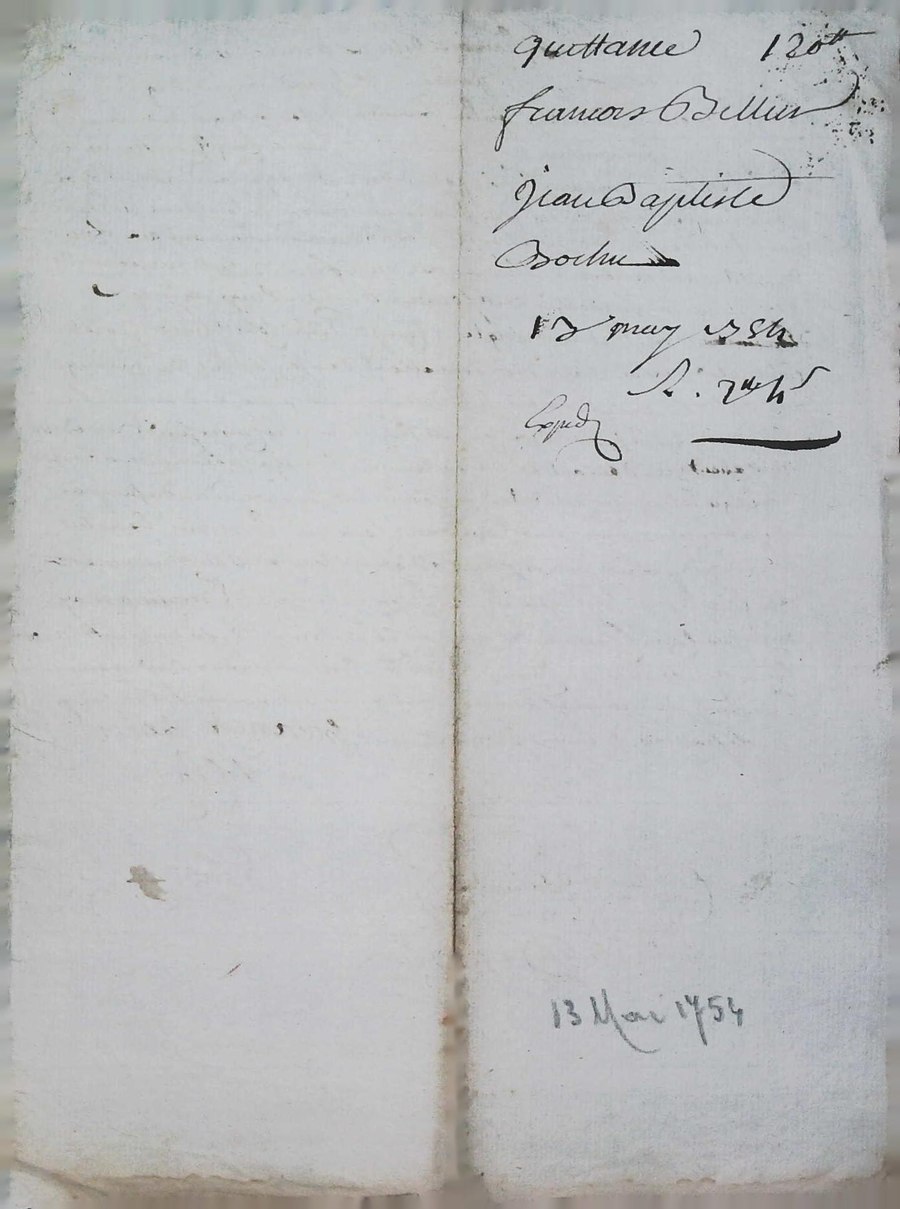 quittance 120tt
francois Bellier
jean Baptiste
Bochu
13 may 1754
Exped
13 Mai 1754